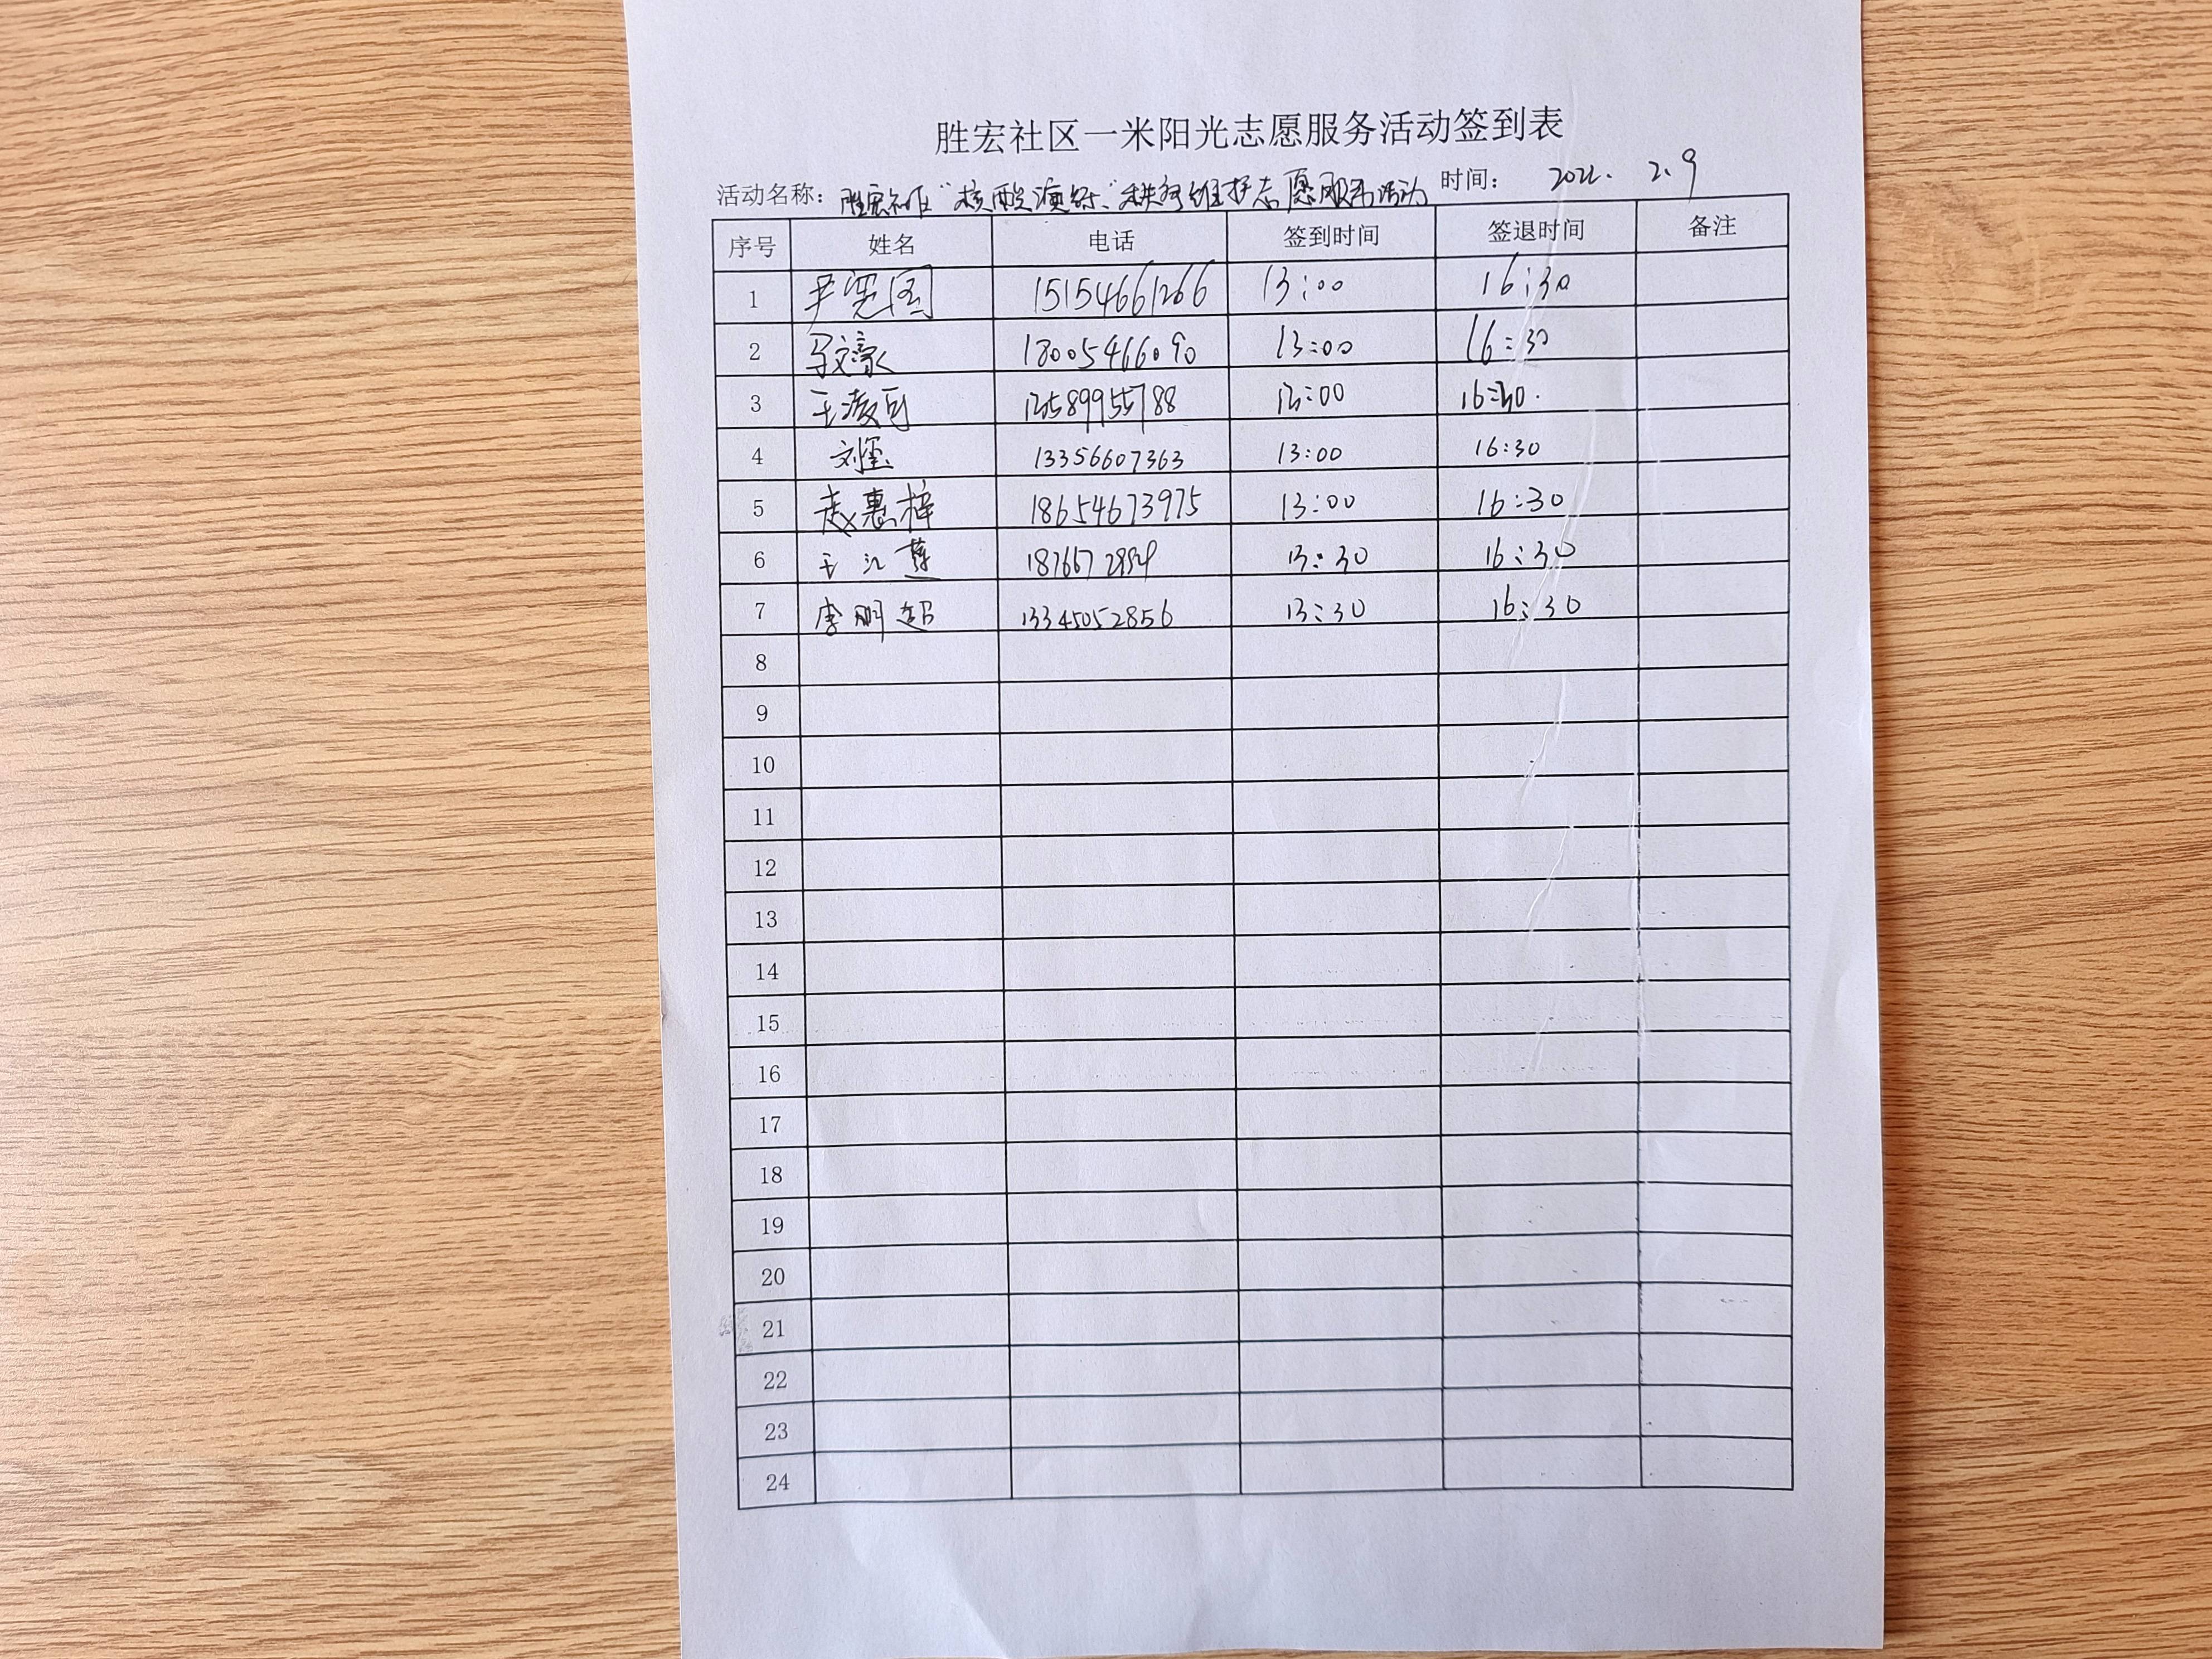 胜宏社区一米阳光志愿服务活动签到表
活动名称：胜宏社区“核酸演练”秩序维护志愿服务活动 时间： 2022. 2.9
序号 姓名 电话 签到时间 签退时间 备注
1 尹 国 15154661266 13:00 16:30
2 马文豪 18005466090 13:00 16:30
3 王凌 13589955788 13:00 16:30.
4 刘 13356607363 13:00 16:30
5 袁惠梓 18654673975 13:00 16:30
6 王 13:30 16:30
7 李鹏超 13345052856 13:30 16:30
8
9
10
11
12
13
14
15
16
17
18
19
20
21
22
23
24